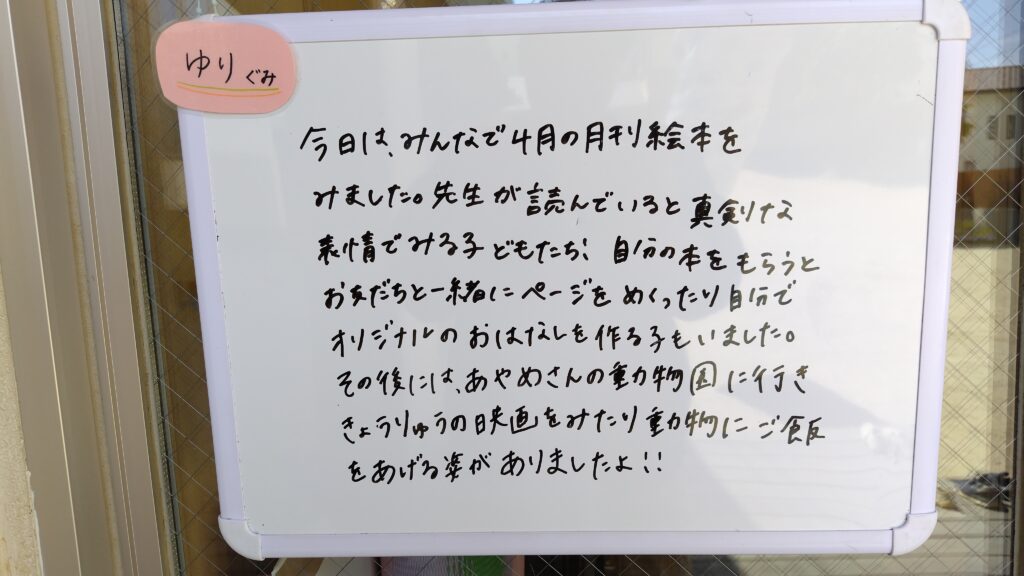 ゆり ぐみ
今日は、みんなで4月の月刊絵本を
みました。先生が読んでいると真剣な
表情でみる子どもたち！自分の本をもらうと
お友だちと一緒にページをめくったり自分で
オリジナルのおはなしを作る子もいました。
その後には、あやめさんの動物園に行き
きょうりゅうの映画をみたり動物にご飯
をあげる姿がありましたよ！！